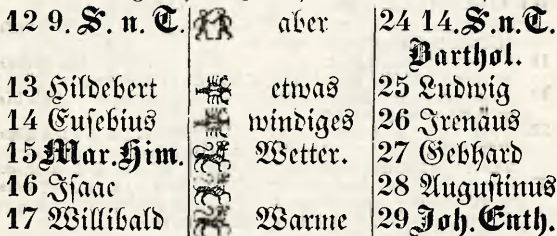 12 9. S. n. T. aber 24 14. S. n. T.
Barthol.
13 Hildebert etwas 25 Ludwig
14 Eusebius windiges 26 Irenäus
15 Mar. Him. Wetter. 27 Gebhard
16 Isaac 28 Augustinus
17 Willibald Warme 29 Joh. Enth.